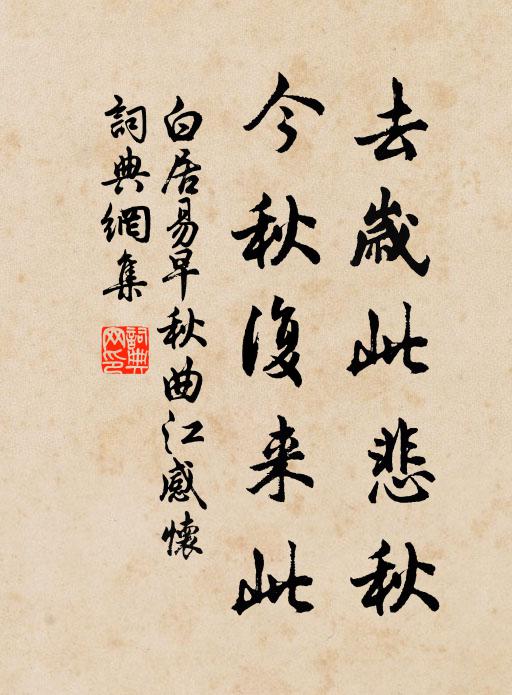 去歲此悲秋
今秋復来此
白居易早秋曲江感懷
詞典網集
詞典網印